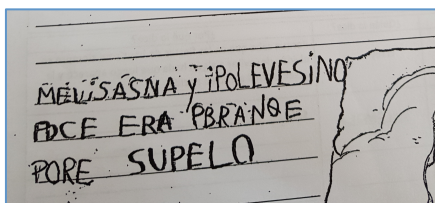 MEViSASNA y iPOLEVESiNO
PDCE ERA PBRANQE
PORE SUPELO